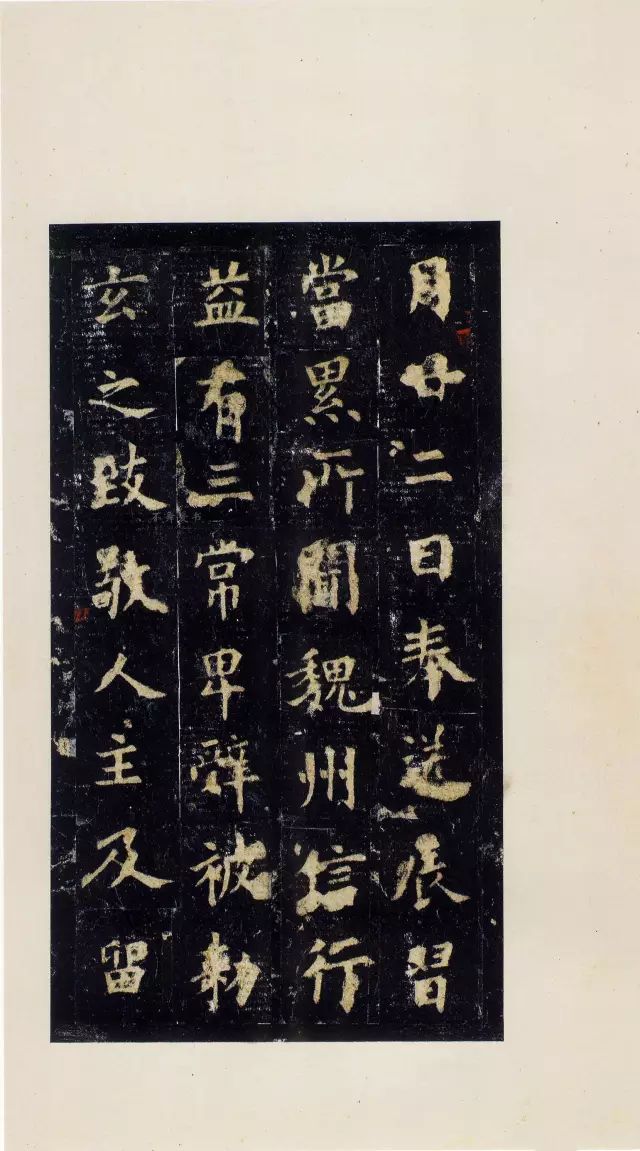 月廿二日奉送展習
當累所聞魏州信行
益有三常卑辭被勅
玄之跂敬人主及留